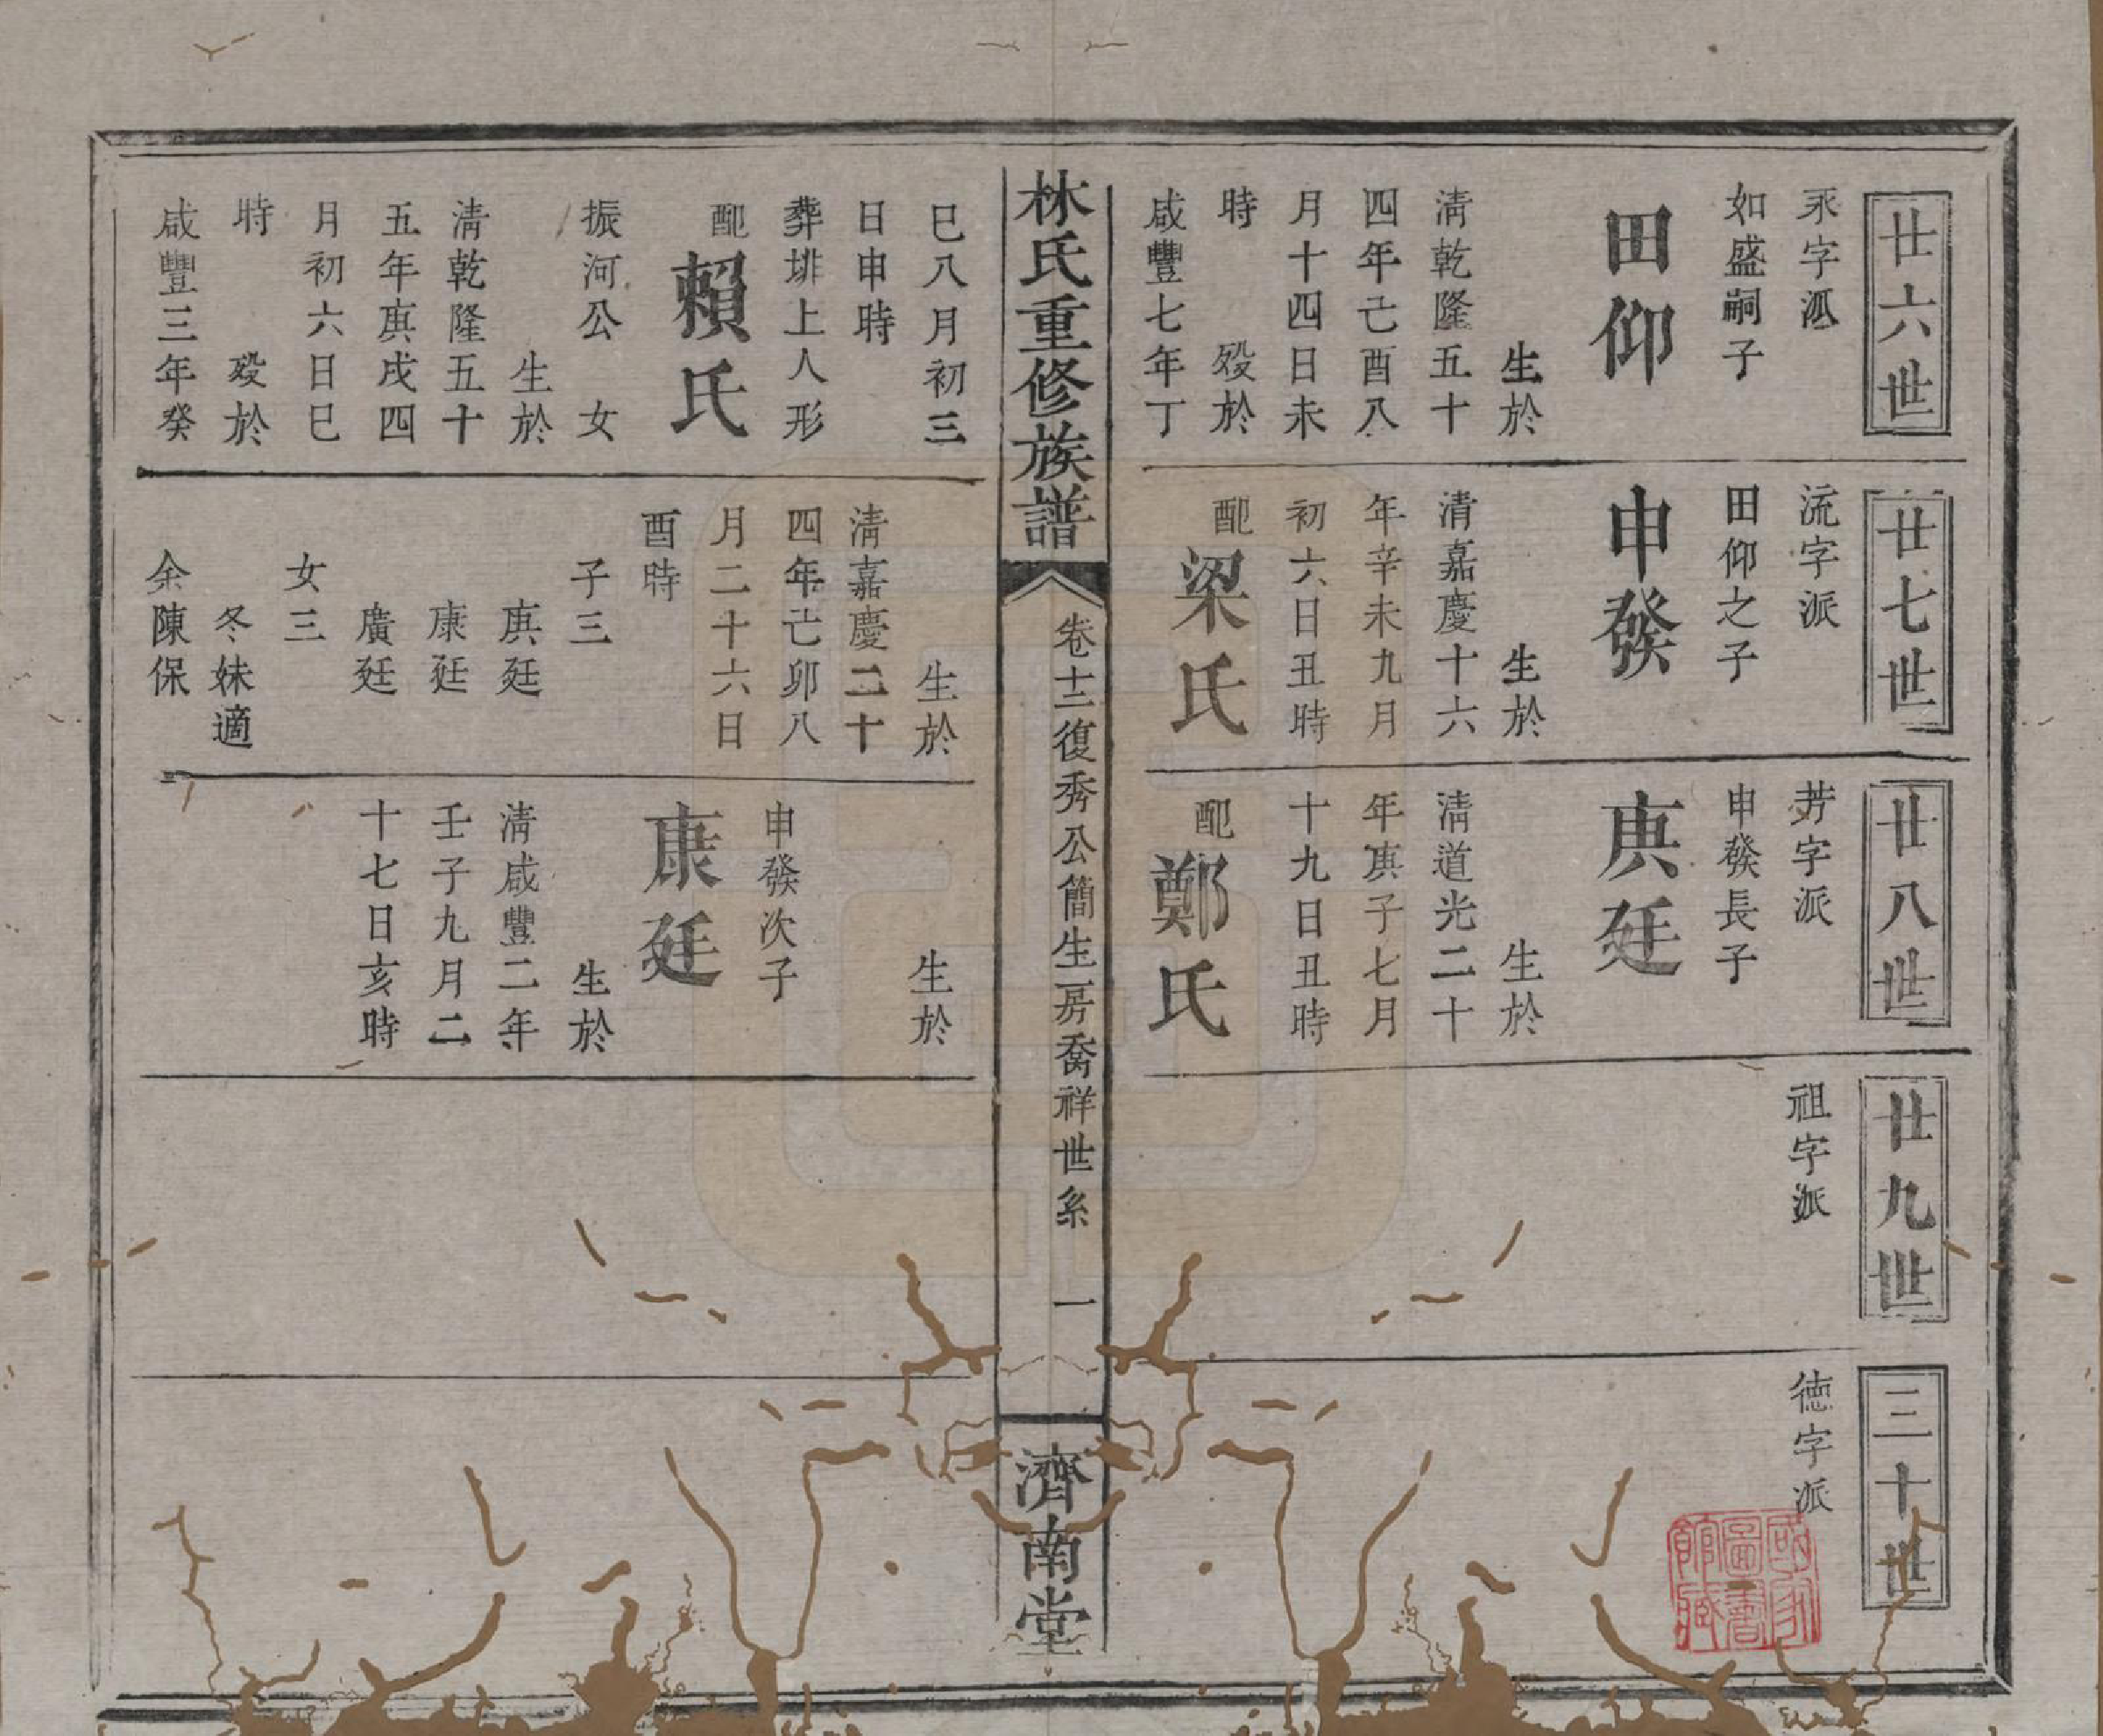 廿六世
永字派
如盛嗣子
田仰
生於
清乾隆五十
四年己酉八
月十四日未
時 歿於
咸豐七年丁
巳八月初三
日申時
葬排上人形
配賴氏
振河公 女
生於
清乾隆五十
五年庚戌四
月初六日巳
時 歿於
咸豐三年癸
廿七世
流字派
田仰之子
申發
生於
清嘉慶十六
年辛未九月
初六日丑時
配梁氏
生於
清嘉慶二十
四年己卯八
月二十六日
酉時
子三
庚廷
康廷
廣廷
女三
冬妹適
余陳保
廿八世
芳字派
申發長子
庚廷
生於
清道光二十
年庚子七月
十九日丑時
配鄭氏
生於
申發次子
康廷
生於
清咸豐二年
壬子九月二
十七日亥時
廿九世
祖字派
三十世
德字派
林氏重修族譜
卷十二復秀公簡生一房喬祥世系 一
濟南堂
國家圖書館藏